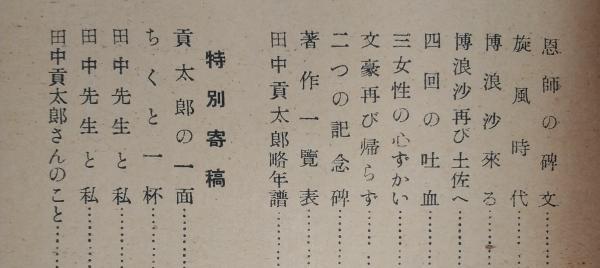 恩師の碑文………
旋風時代………
博浪沙來る………
博浪沙再び土佐へ………
四回の吐血………
三女性の心ずかい………
文豪再び帰らず………
二つの記念碑………
著作一覽表………
田中貢太郎略年譜………
特別寄稿
貢太郎の一面………
ちくと一杯………
田中先生と私………
田中先生と私………
田中貢太郎さんのこと………